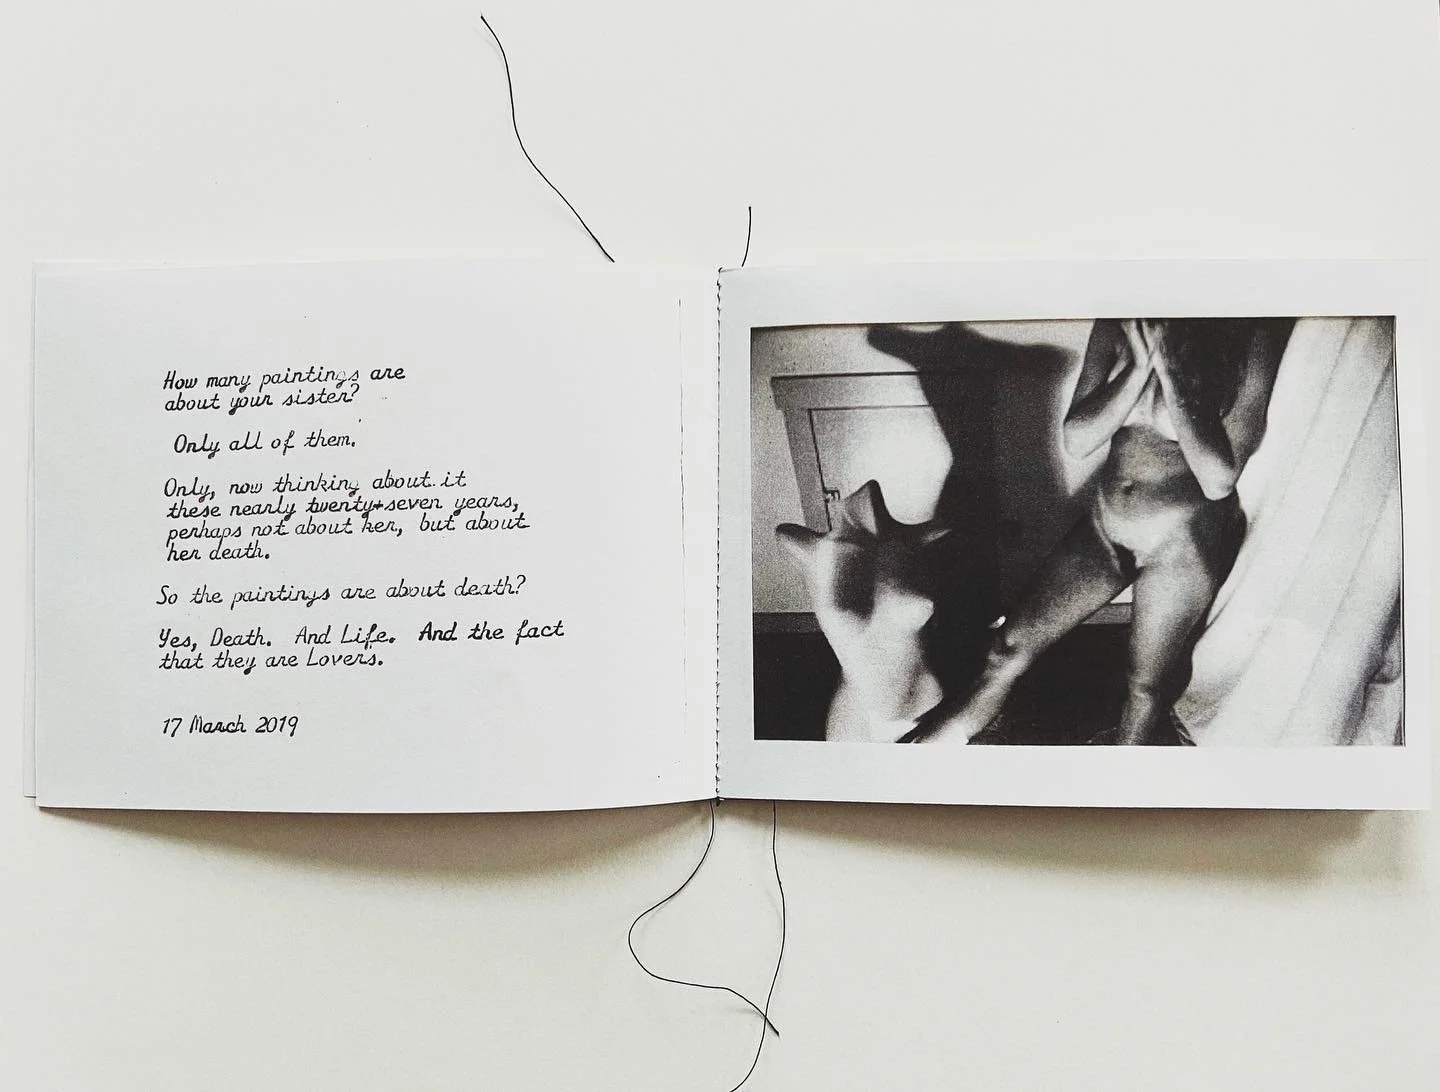 How many paintings are
about your sister?
Only all of them.
Only, now thinking about it
these nearly twenty-seven years,
perhaps not about her, but about
her death.
So the paintings are about death?
Yes, Death. And Life. And the fact
that they are Lovers.
17 March 2019